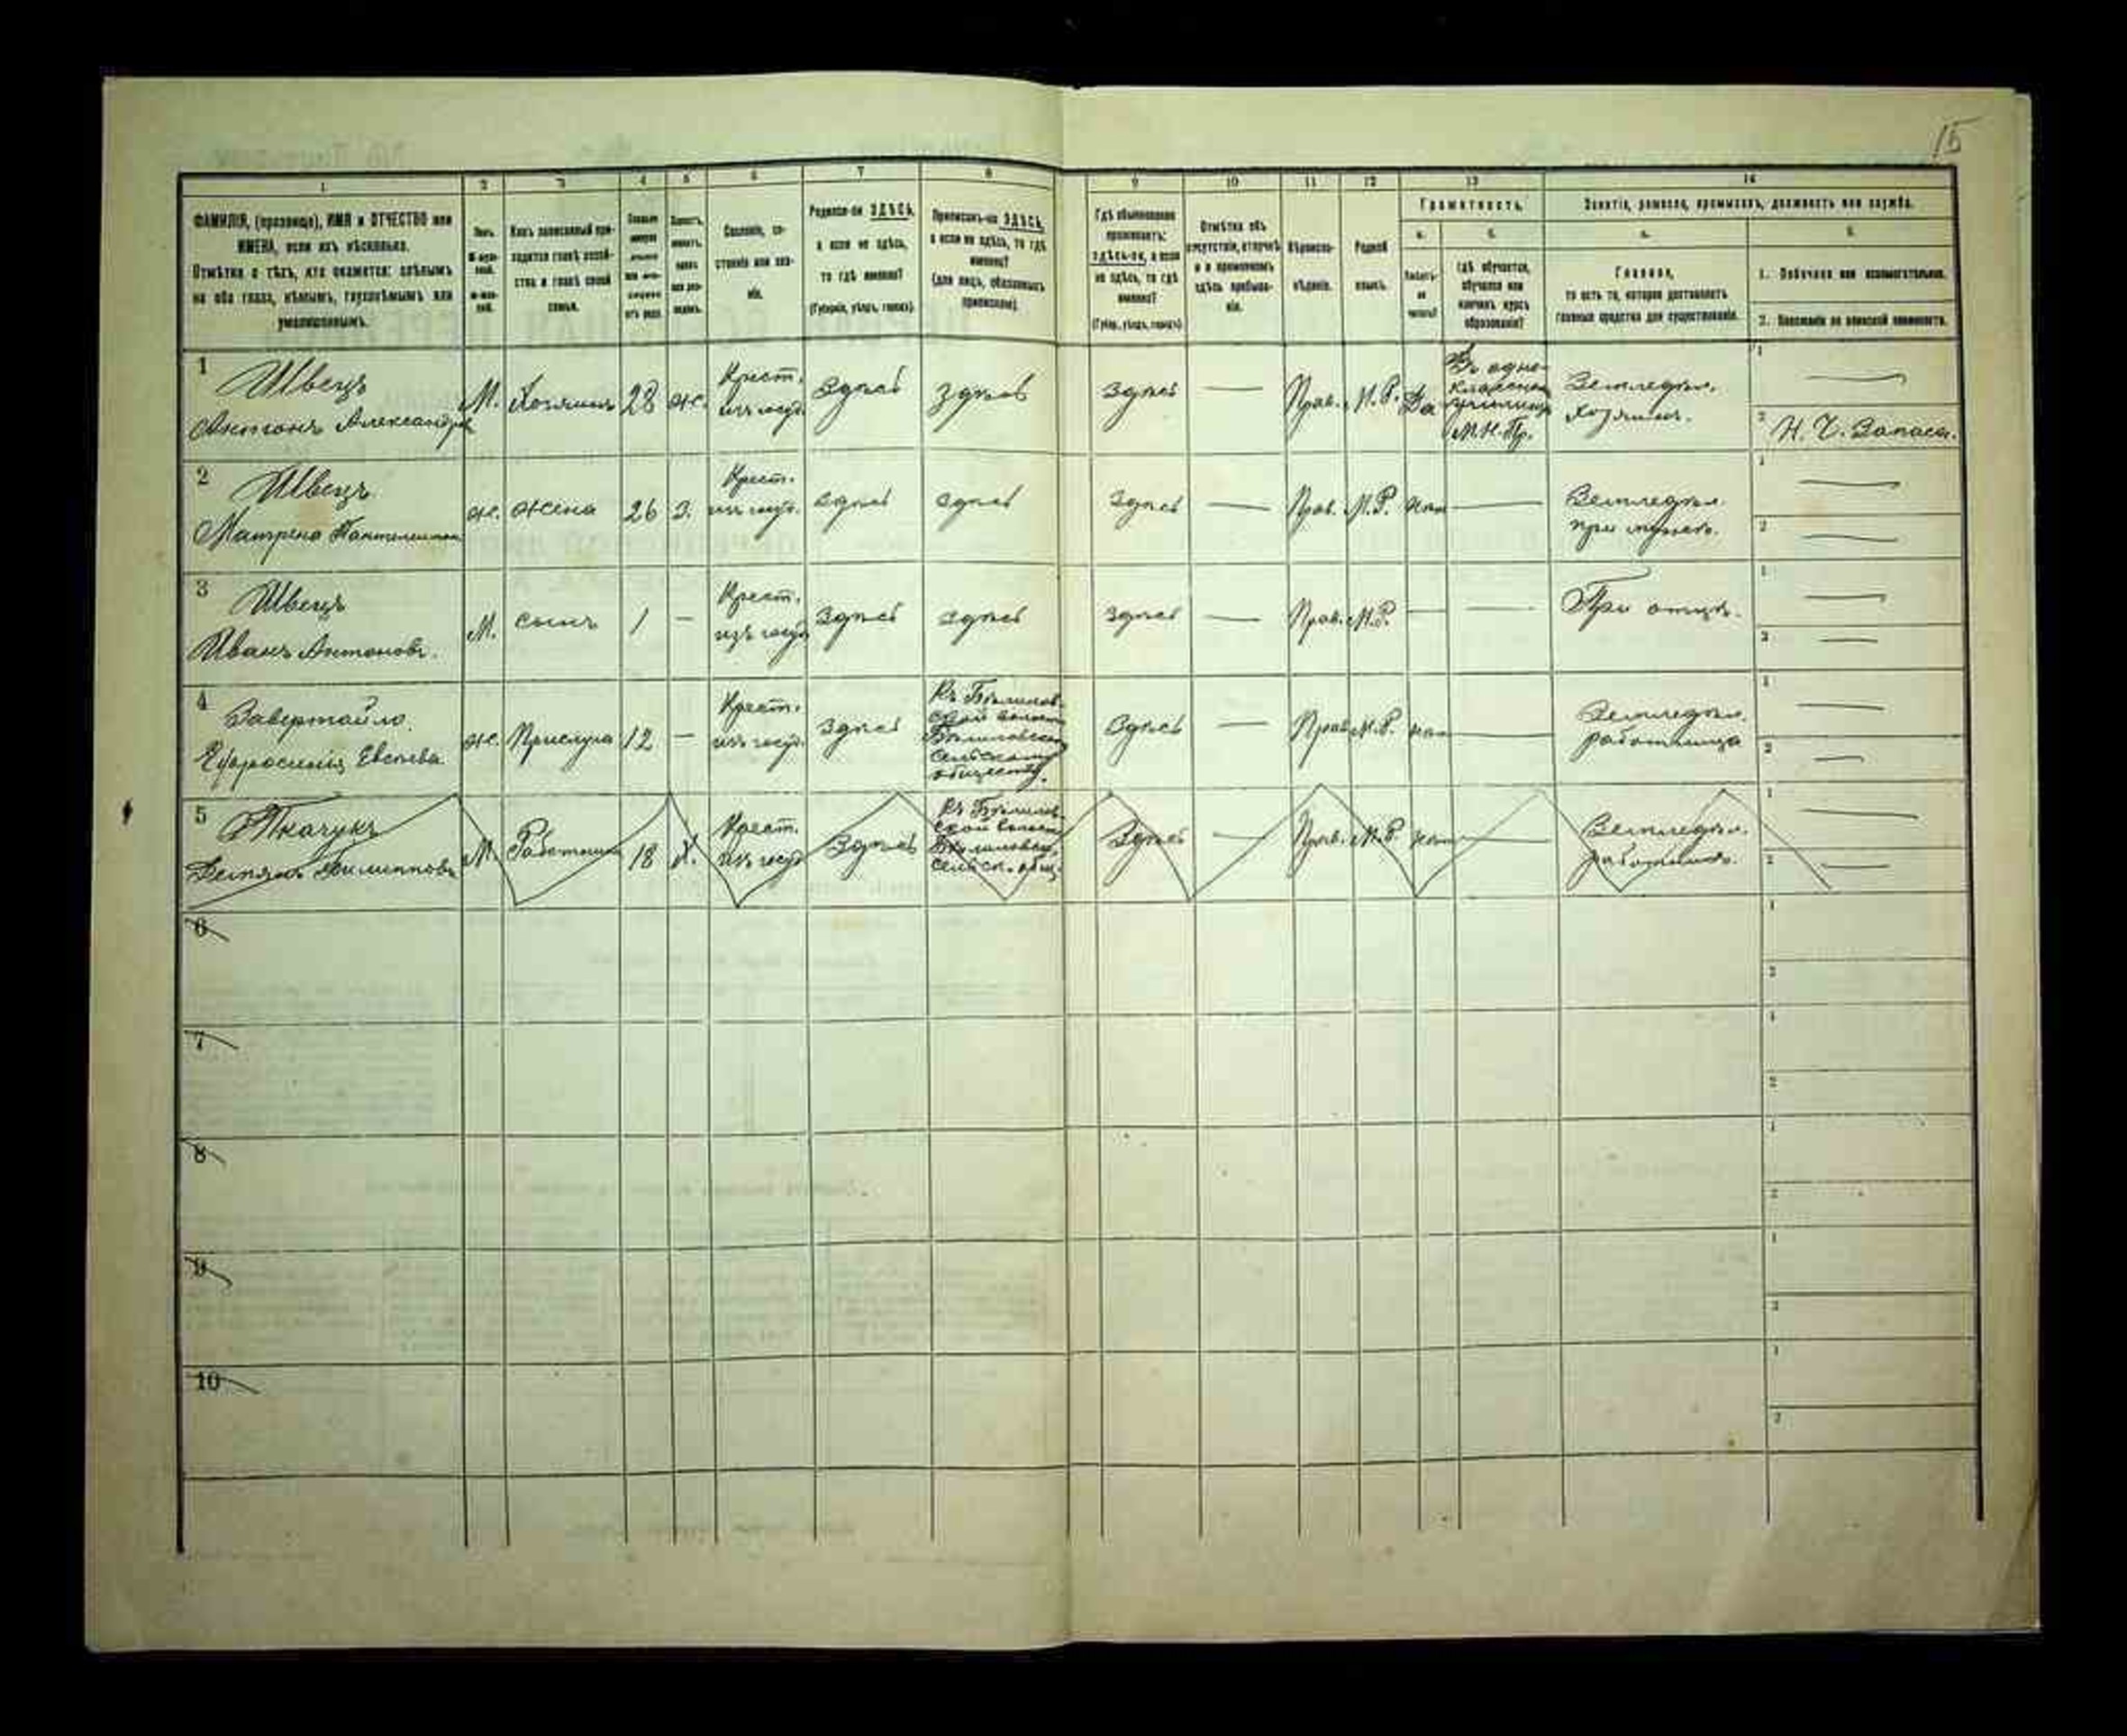 15
1
2
3
4
5
6
7
8
9
10
11
12
13
14
ФАМИЛІЯ, (прозвище), ИМЯ и ОТЧЕСТВО или
ИМЕНА, если ихъ нѣсколько.
Отмѣтка о тѣхъ, кто окажется: слѣпымъ
на оба глаза, нѣмымъ, глухонѣмымъ или
умалишеннымъ.
Полъ.
Какъ записанный при-
ходится главѣ хозяй-
ства и главѣ своей
семьи.
Сословіе, со-
стояніе или зва-
ніе.
Родился-ли ЗДѢСЬ,
а если не здѣсь,
то гдѣ именно?
(Губернія, уѣздъ, городъ).
Приписанъ-ли ЗДѢСЬ,
а если не здѣсь, то гдѣ
именно?
(для лицъ, обязанныхъ
припискою).
Гдѣ обыкновенно
проживаетъ:
здѣсь-ли, а если
не здѣсь, то гдѣ
именно?
(Губер., уѣздъ, городъ).
Отмѣтка объ
отсутствіи, отлучкѣ
и о временномъ
здѣсь пребыва-
ніи.
Вѣроиспо-
вѣданіе.
Родной
языкъ.
Грамотность.
а.
б.
Умѣетъ-
ли
читать?
Гдѣ обучается,
обучался или
кончилъ курсъ
образованія?
Занятіе, ремесло, промыселъ, должность или служба.
а.
Главное,
то есть то, которое доставляетъ
главныя средства для существованія.
б.
1. Побочное или вспомогательное.
2. Положеніе по воинской повинности.
1 Швецъ
Антонъ Александр
М. Хозяинъ 28 ж. Крест. изъ госуд. Здѣсь Здѣсь Здѣсь — Прав. М.Р. Да
Въ одно-
классном
училищѣ
М.Н.Пр.
Земледѣл.
хозяинъ.
1 —
2 Н. Ч. Запаса.
2 Швецъ
Матрена Пантелеимон
ж. жена 26 З. Крест. изъ госуд. Здѣсь здѣсь Здѣсь — Прав. М.Р. нѣт —
Земледѣл.
при мужѣ.
1 —
2 —
3 Швецъ
Иванъ Антоновъ.
М. сынъ 1 — Крест. изъ госуд. Здѣсь здѣсь Здѣсь — Прав. М.Р. — —
При отцѣ.
1 —
2 —
4 Завертайло
Ефросинія Евсѣева
ж. Прислуга 12 — Крест. изъ госуд. Здѣсь
Къ Бѣлилов-
ской волости
Бѣлиловском
сельскому
обществу.
Здѣсь — Прав. М.Р. нѣт —
Земледѣл.
работница
1 —
2 —
5 Ткачукъ
Демьянъ Филипповъ
М. Работникъ 18 Х. Крест. изъ госуд. Здѣсь
Къ Бѣлилов-
ской волости
Бѣлиловско
сельск. общ.
Здѣсь — Прав. М.Р. нѣт —
Земледѣл.
работникъ.
1 —
2 —
6
1
2
7
1
2
8
1
2
9
1
2
10
1
2